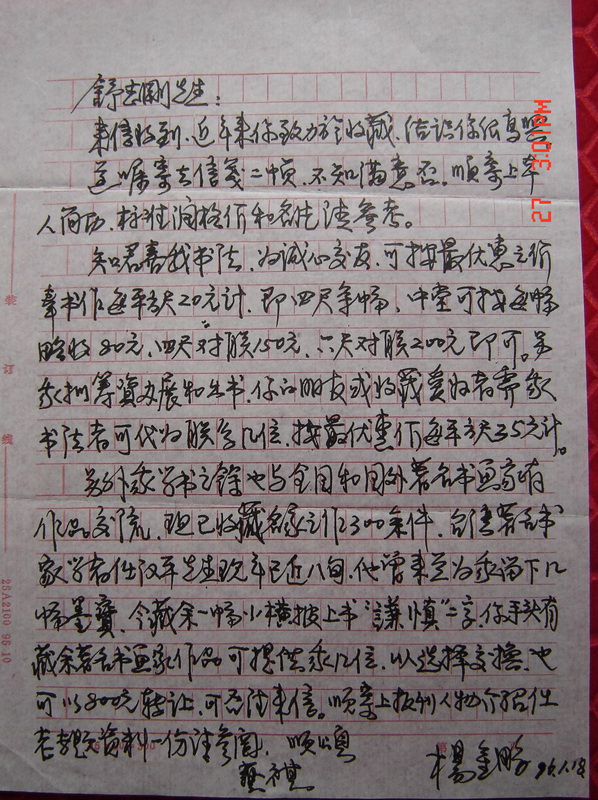 舒志刚先生：
来信收到，近年来你致力于收藏，结识你很高兴
遵嘱寄去信笺二帧，不知满意否。顺寄上本
人简历，标准润格价和名片请参考。
知君喜我书法，为诚心交友，可按最优惠之价
奉书作每平方尺20元计，即四尺条幅，中堂可按每幅
略收80元，四尺对联150元，六尺对联200元即可。另
我拟筹资办展和出书，你的朋友或收藏爱好者需我
书法者可代为联系几位，按最优惠价每平方尺35元计。
另外我学书之余也与全国和国外著名书画家有
作品交流，现已收藏名家之作300余件，台湾著名书
家学者任汉平先生现年已近八旬，他曾来兰为我留下几
幅墨宝，今藏余一幅小横披上书“謙慎”二字，你手头有
藏余著名书画家作品可提供我几位，以选择交换，也
可以800元转让，可否请来信。顺寄上报刊人物介绍任
老先生资料一份请参阅，顺颂
冀祺。
楊金鹏 96.1.18
装
订
线
25A2100 95.10
27 3:01PM